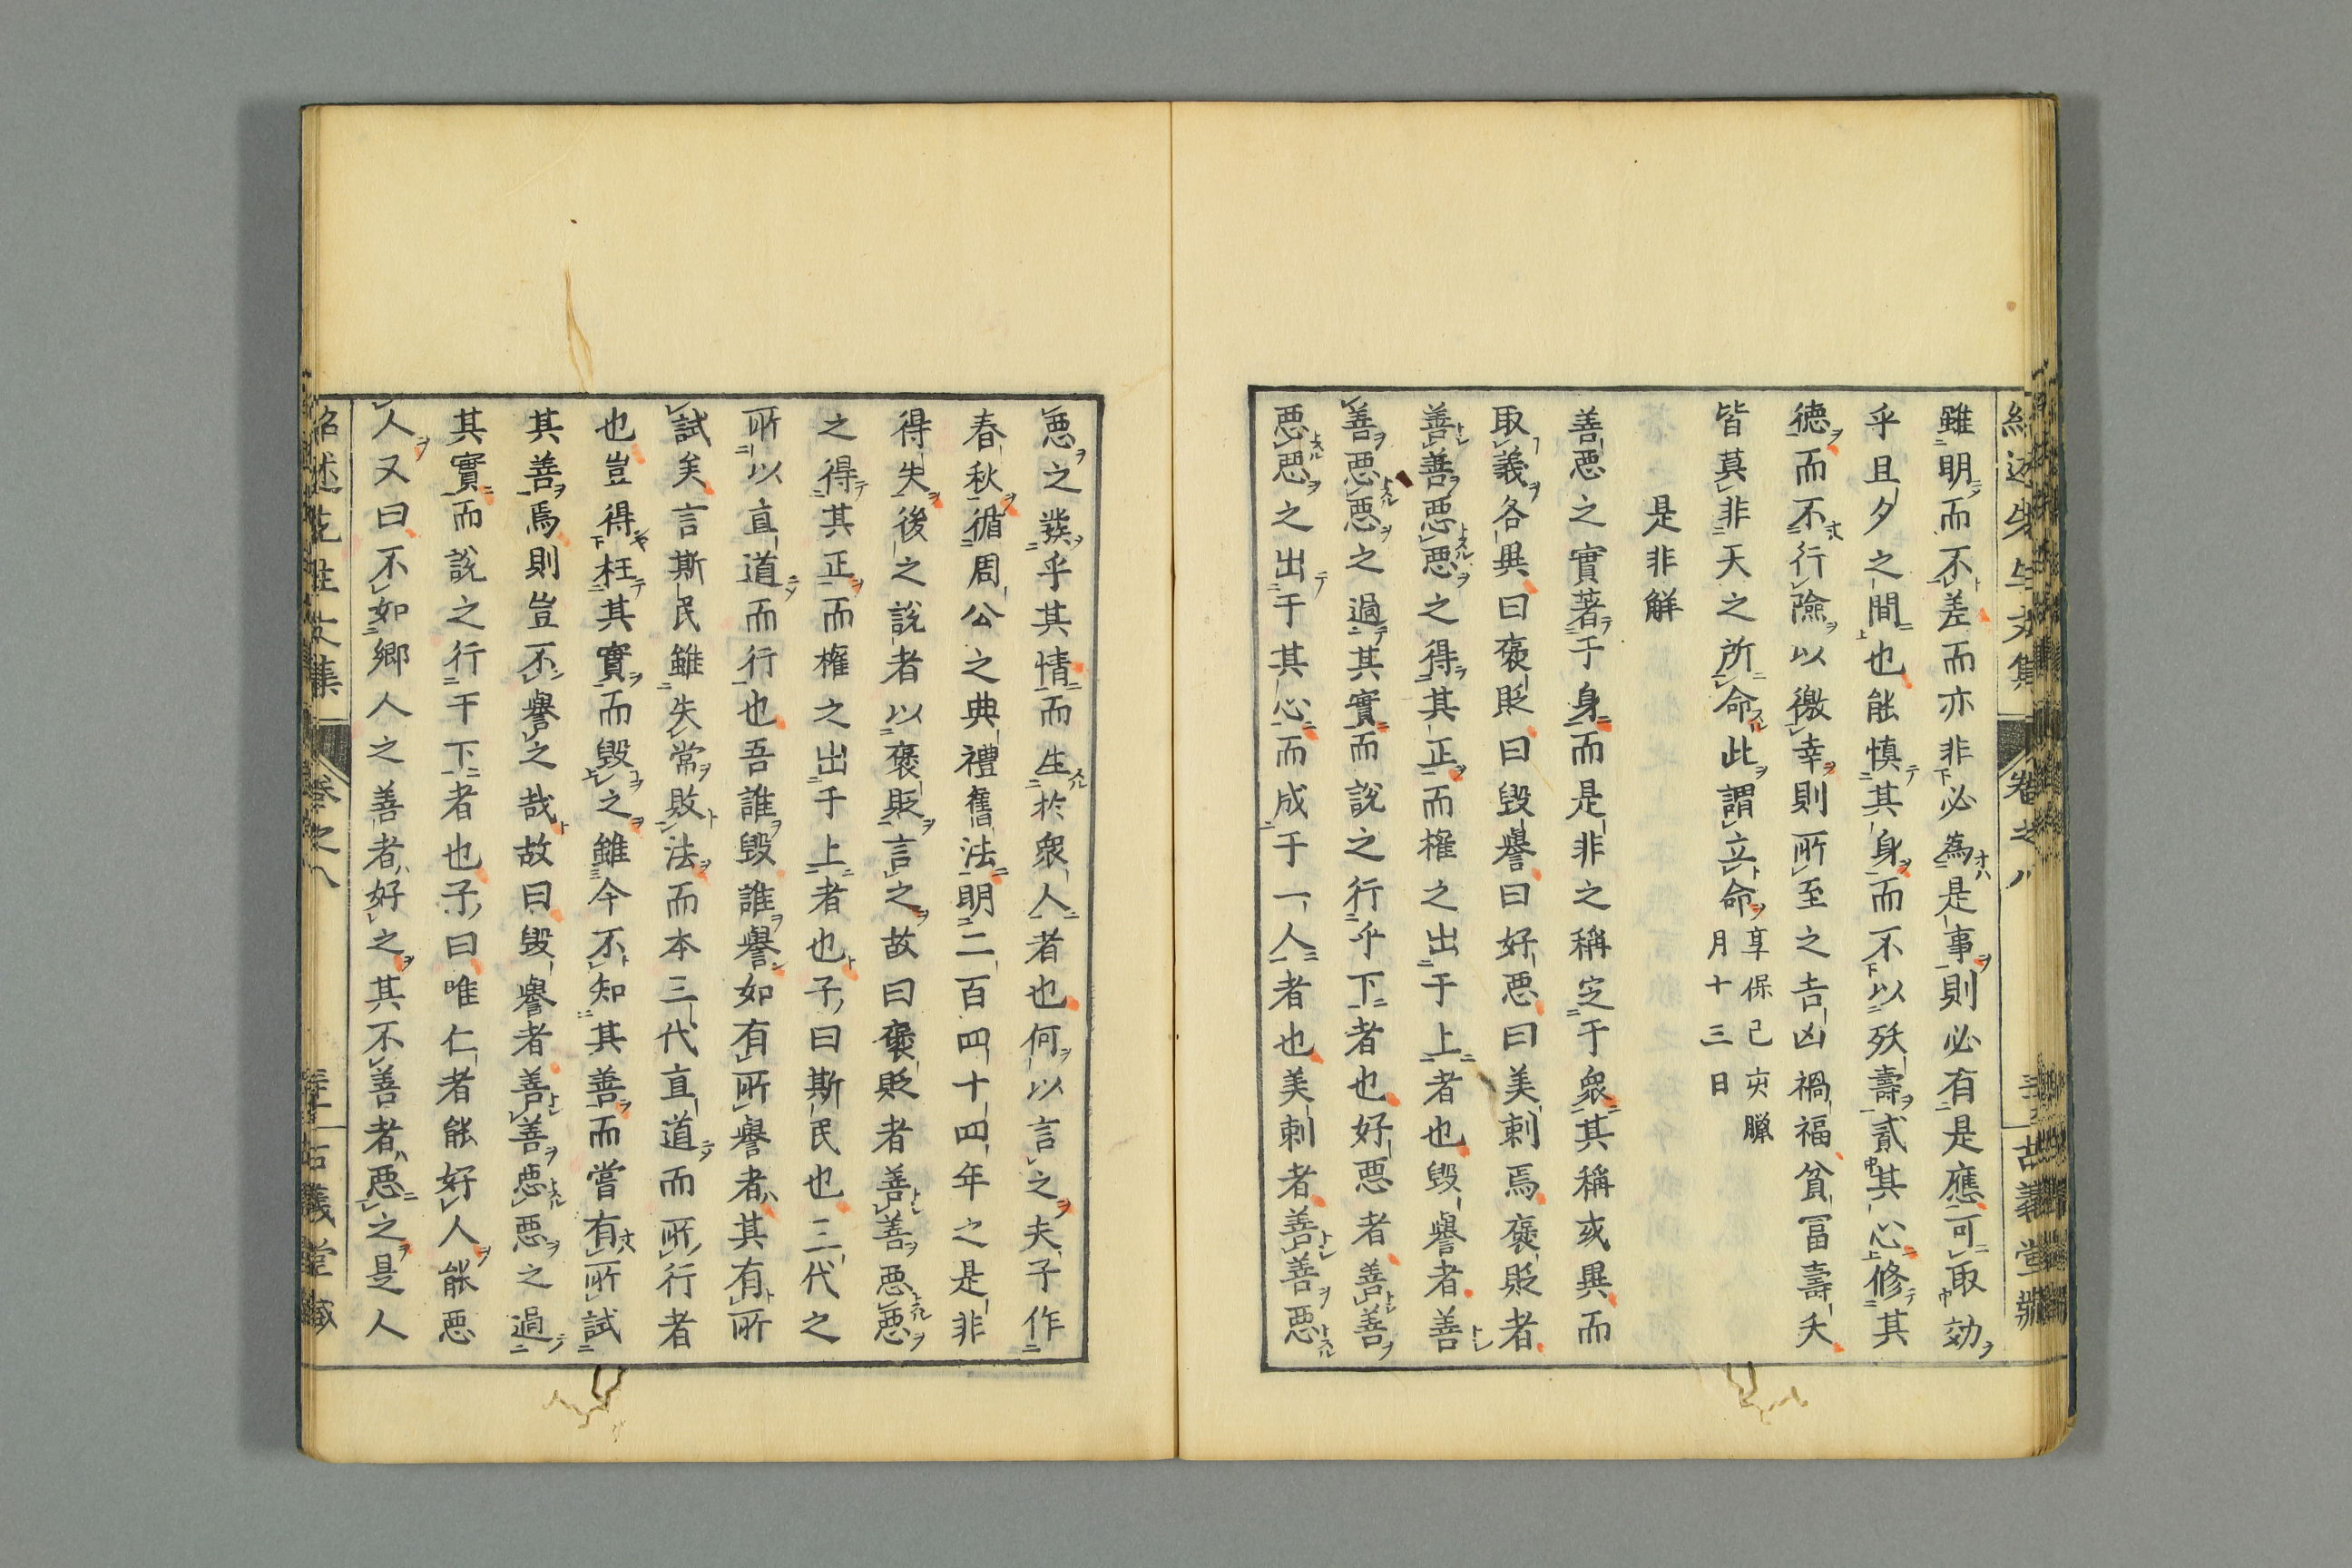 雖明而不差而亦非必為是事則必有是應可取効
乎且夕之間也能慎其身而不以殀壽貳其心修其
德而不行險以徼幸則所至之吉凶禍福貧富壽夭
皆莫非天之所命此謂立命享保己亥臘
月十三日
是非解
善惡之實著于身而是非之稱定于衆其稱或異而
取義各異曰褒貶曰毀譽曰好惡曰美刺焉褒貶者
善善惡惡之得其正而權之出于上者也毀譽者善
善惡惡之過其實而說之行乎下者也好惡者善善
惡惡之出于其心而成于一人者也美刺者善善惡
惡之發乎其情而生於衆人者也何以言之夫子作
春秋循周公之典禮舊法明二百四十四年之是非
得失後之說者以褒貶言之故曰褒貶者善善惡惡
之得其正而權之出于上者也子曰斯民也三代之
所以直道而行也吾誰毀誰譽如有所譽者其有所
試矣言斯民雖失常敗法而本三代直道而所行者
也豈得枉其實而毀之雖今不知其善而嘗有所試
其善焉則豈不譽之哉故曰毀譽者善善惡惡之過
其實而說之行于下者也子曰唯仁者能好人能惡
人又曰不如鄉人之善者好之其不善者惡之是人
紹述先生文集 卷之八 古義堂藏